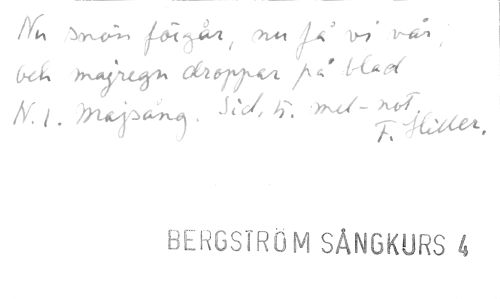 Nu snön förgår, nu få vi vår,
och majregn droppar på blad
N. 1. Majsång. Sid. 5. mel-not.
F. Hiller.
BERGSTRÖM SÅNGKURS 4